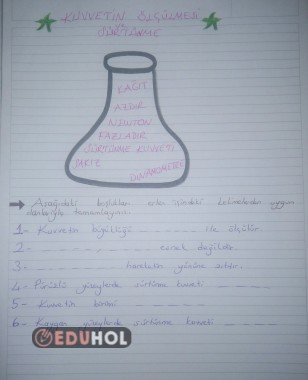 KUVVETİN ÖLÇÜLMESİ
SÜRTÜNME
KAĞIT
AZDIR
NEWTON
FAZLADIR
SÜRTÜNME KUVVETİ
SAKIZ
DİNAMOMETRE
→ Aşağıdaki boşlukları erlen içindeki kelimelerden uygun
olanlarıyla tamamlayınız.
1- Kuvvetin büyüklüğü _ _ _ _ _ ile ölçülür.
2- _ _ _ _ _ esnek değildir.
3- _ _ _ _ _ hareketin yönüne zıttır.
4- Pürüzlü yüzeylerde sürtünme kuvveti _ _ _ _
5- Kuvvetin birimi _ _ _ _ _
6- Kaygan yüzeylerde sürtünme kuvveti _ _ _ _
EDUHOL